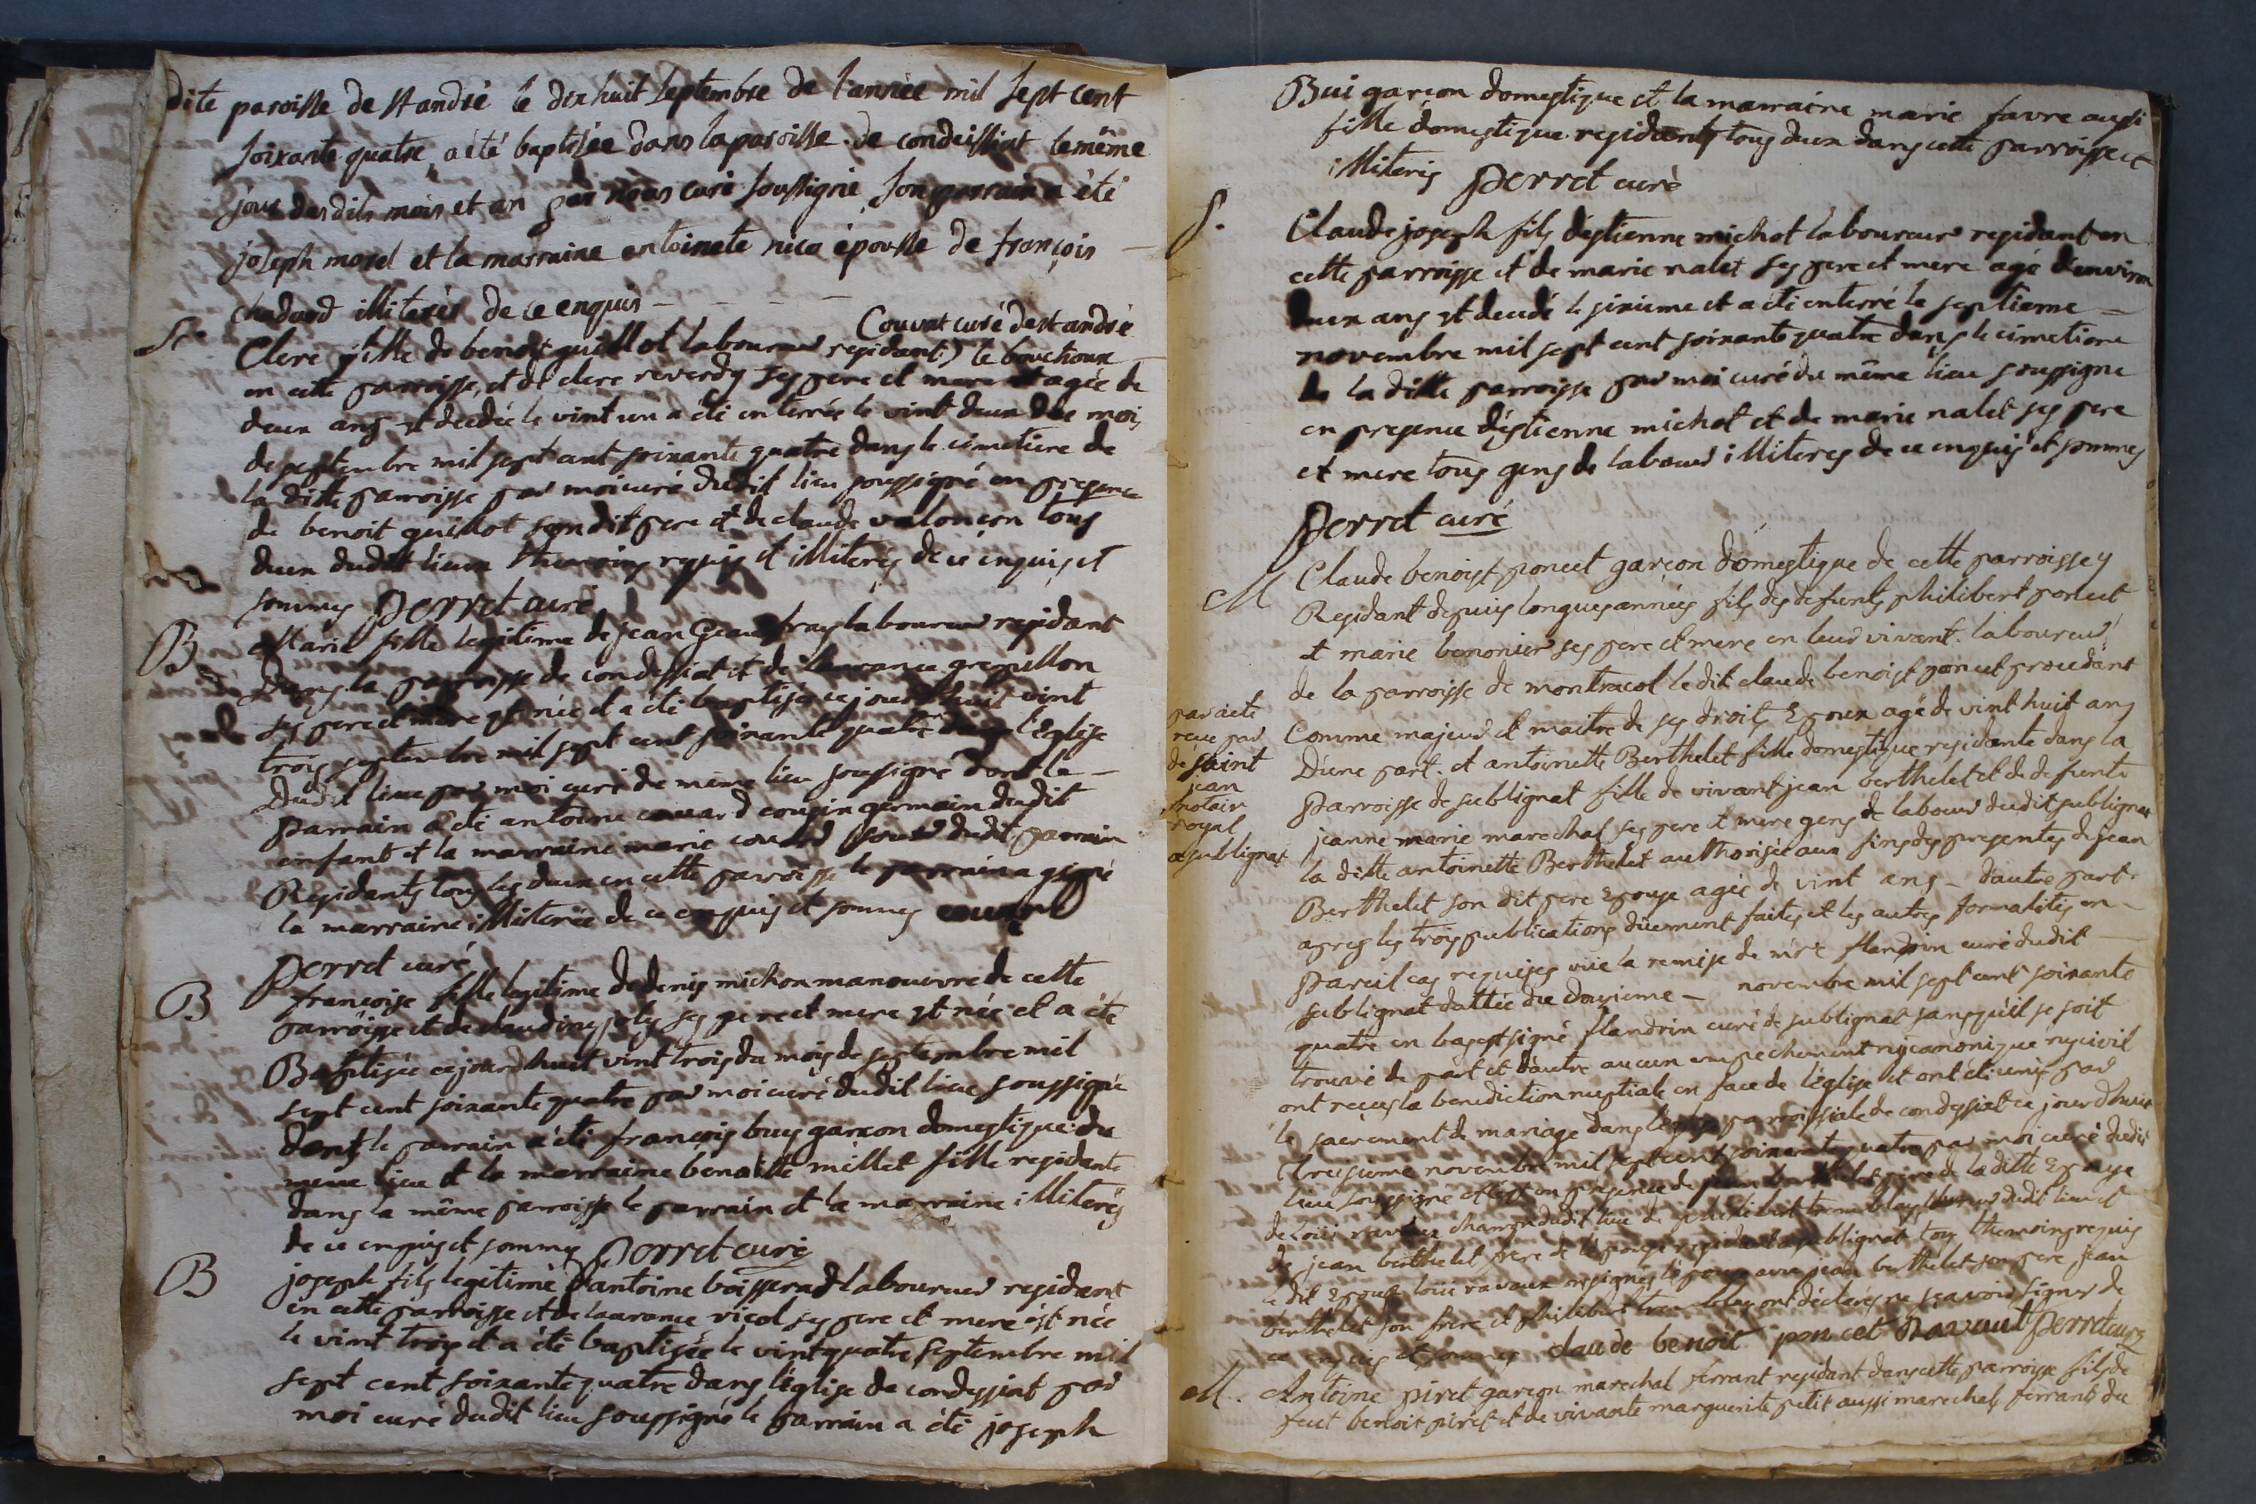 dite paroisse de st andré le dix huit septembre de l'année mil sept cent
soixante quatre a été baptisée dans la paroisse de condeissiat le même
jour des dits mois et an par nous curé soussigné son parrain a été
joseph morel et la marraine antoinete nica épousse de françois
chadard illiterés de ce enquis
Couvat curé de st andré
S.
Clere fille de benoit guillot laboureur residant le bouchoux
en cette parroisse, et de clere reverdy ses pere et mere agée de
deux ans est decedée le vint un a été enterrée le vint deux du mois
de septembre mil sept cent soixante quatre dans le cimetiere de
la ditte parroisse par moi curé dudit lieu soussigné en presence
de benoit guillot son dit pere et de claude valoncon tous
deux dudit lieux themoins requis et illiterés de ce enquis et
sommes Perret curé
B
Marie fille legitime de jean laboureur residant
Dans la parroisse de condessiat et de laurance gremillon
ses pere et mere est née et a été baptisée ce jourd'huit vint
trois septembre mil sept cent soixante quatre dans l'Eglise
Dudit lieu par moi curé du meme lieu sousigné dont le
Parrain a été antoine couard cousin germain dudit
enfant et la marraine marie couard soeur dudit parrain
Residants tous les deux en cette parroisse le parrain a signé
la marraine illiterée de ce enquis et sommes couard
Perret curé
B
françoise fille legitime de denis michon manouivre de cette
parroisse et de claudine joly ses pere et mere est née et a été
Baptisée ce jourd'huit vint trois du mois de septembre mil
sept cent soixante quatre par moi curé dudit lieu soussigné
dont le parrain a été françois buy garcon domestique du
meme lieu et la marraine benoitte millet fille residante
dans la même parroisse le parrain et la marraine illiterés
de ce enquis et sommes Perret curé
B
joseph fils legitime d'antoine boisserad laboureur residant
en cette parroisse et de laurance nicol ses pere et mere est née
le vint trois et a été baptisée le vint quatre septembre mil
sept cent soixante quatre dans l'église de condessiat par
moi curé dudit lieu soussigné le parrain a été joseph
Bui garcon domestique et la marraine marie favre aussi
fille domestique residents tous deux dans cette parroisse et
illiteris Perret curé
S.
Claude joseph fils d'estienne michot laboureur residant en
cette parroisse et de marie nalet ses pere et mere agé d'environ
deux ans est decedé le sixieme et a été enterré le septieme
novembre mil sept cent soixante quatre dans le cimetiere
de la ditte parroisse par moi curé du même lieu soussigné
en presence d'estienne michot et de marie nalet ses pere
et mere tous gens de labour illiteres de ce enquis et sommes
Perret curé
M
Claude benoist poncet garcon domestique de cette parroisse y
Residant depuis longues années fils des defunts philibert poncet
et marie bemonier ses pere et mere en leur vivant laboureur
de la parroisse de montracol le dit claude benoist poncet procedant
Comme majeur et maitre de ses droits Epoux agé de vint huit ans
D'une part. et antoinette Berthelet fille domestique residante dans la
Parroisse de sublignat fille de vivant jean berthelet et de defunte
jeanne marie marechal ses pere et mere gens de labour dudit sublignat
la ditte antoinette Berthelet authorisée aux fins des presentes de jean
Berthelet son dit pere Epouse agée de vint ans d'autre part
apres les trois publications düement faites et les autres formalités en
Pareil cas requises vüe la remise de mre flandrin curé dudit
sublignat dattée du douzieme novembre mil sept cent soixante
quatre en bas est signé flandrin curé de sublignat sans qu'il se soit
trouvé de part et d'autre aucun empechement ny canonique ny civil
ont reçus la benediction nuptiale en face de l'eglise et ont été unis par
le sacrement de mariage dans l'eglise parroissiale de condeyssiat ce jourd'huit
treisieme novembre mil sept cent soixante quatre par moi curé dudit
lieu soussigné et en presence de jean berthelet pere de la ditte Epouse
de louis ravaux dudit lieu de philibert laboureur dudit lieu et
de jean berthelet frere de l'epouse residant a sublignat tous themoins requis
le dit Epoux louis ravaux ont signés l'epouse avec jean berthelet son pere jean
berthelet son frere et philibert ont déclarés ne sçavoir signer de
ce enquis et sommes claude benoit poncet Ravaut Perret curé
par acte
recue par
de saint
jean
notair
royal
a sublignat
M.
Antoine piret garçon marechal ferrant residant dans cette parroisse fils de
feut benoit piret et de vivante marguerite petit aussi marechals ferrants du